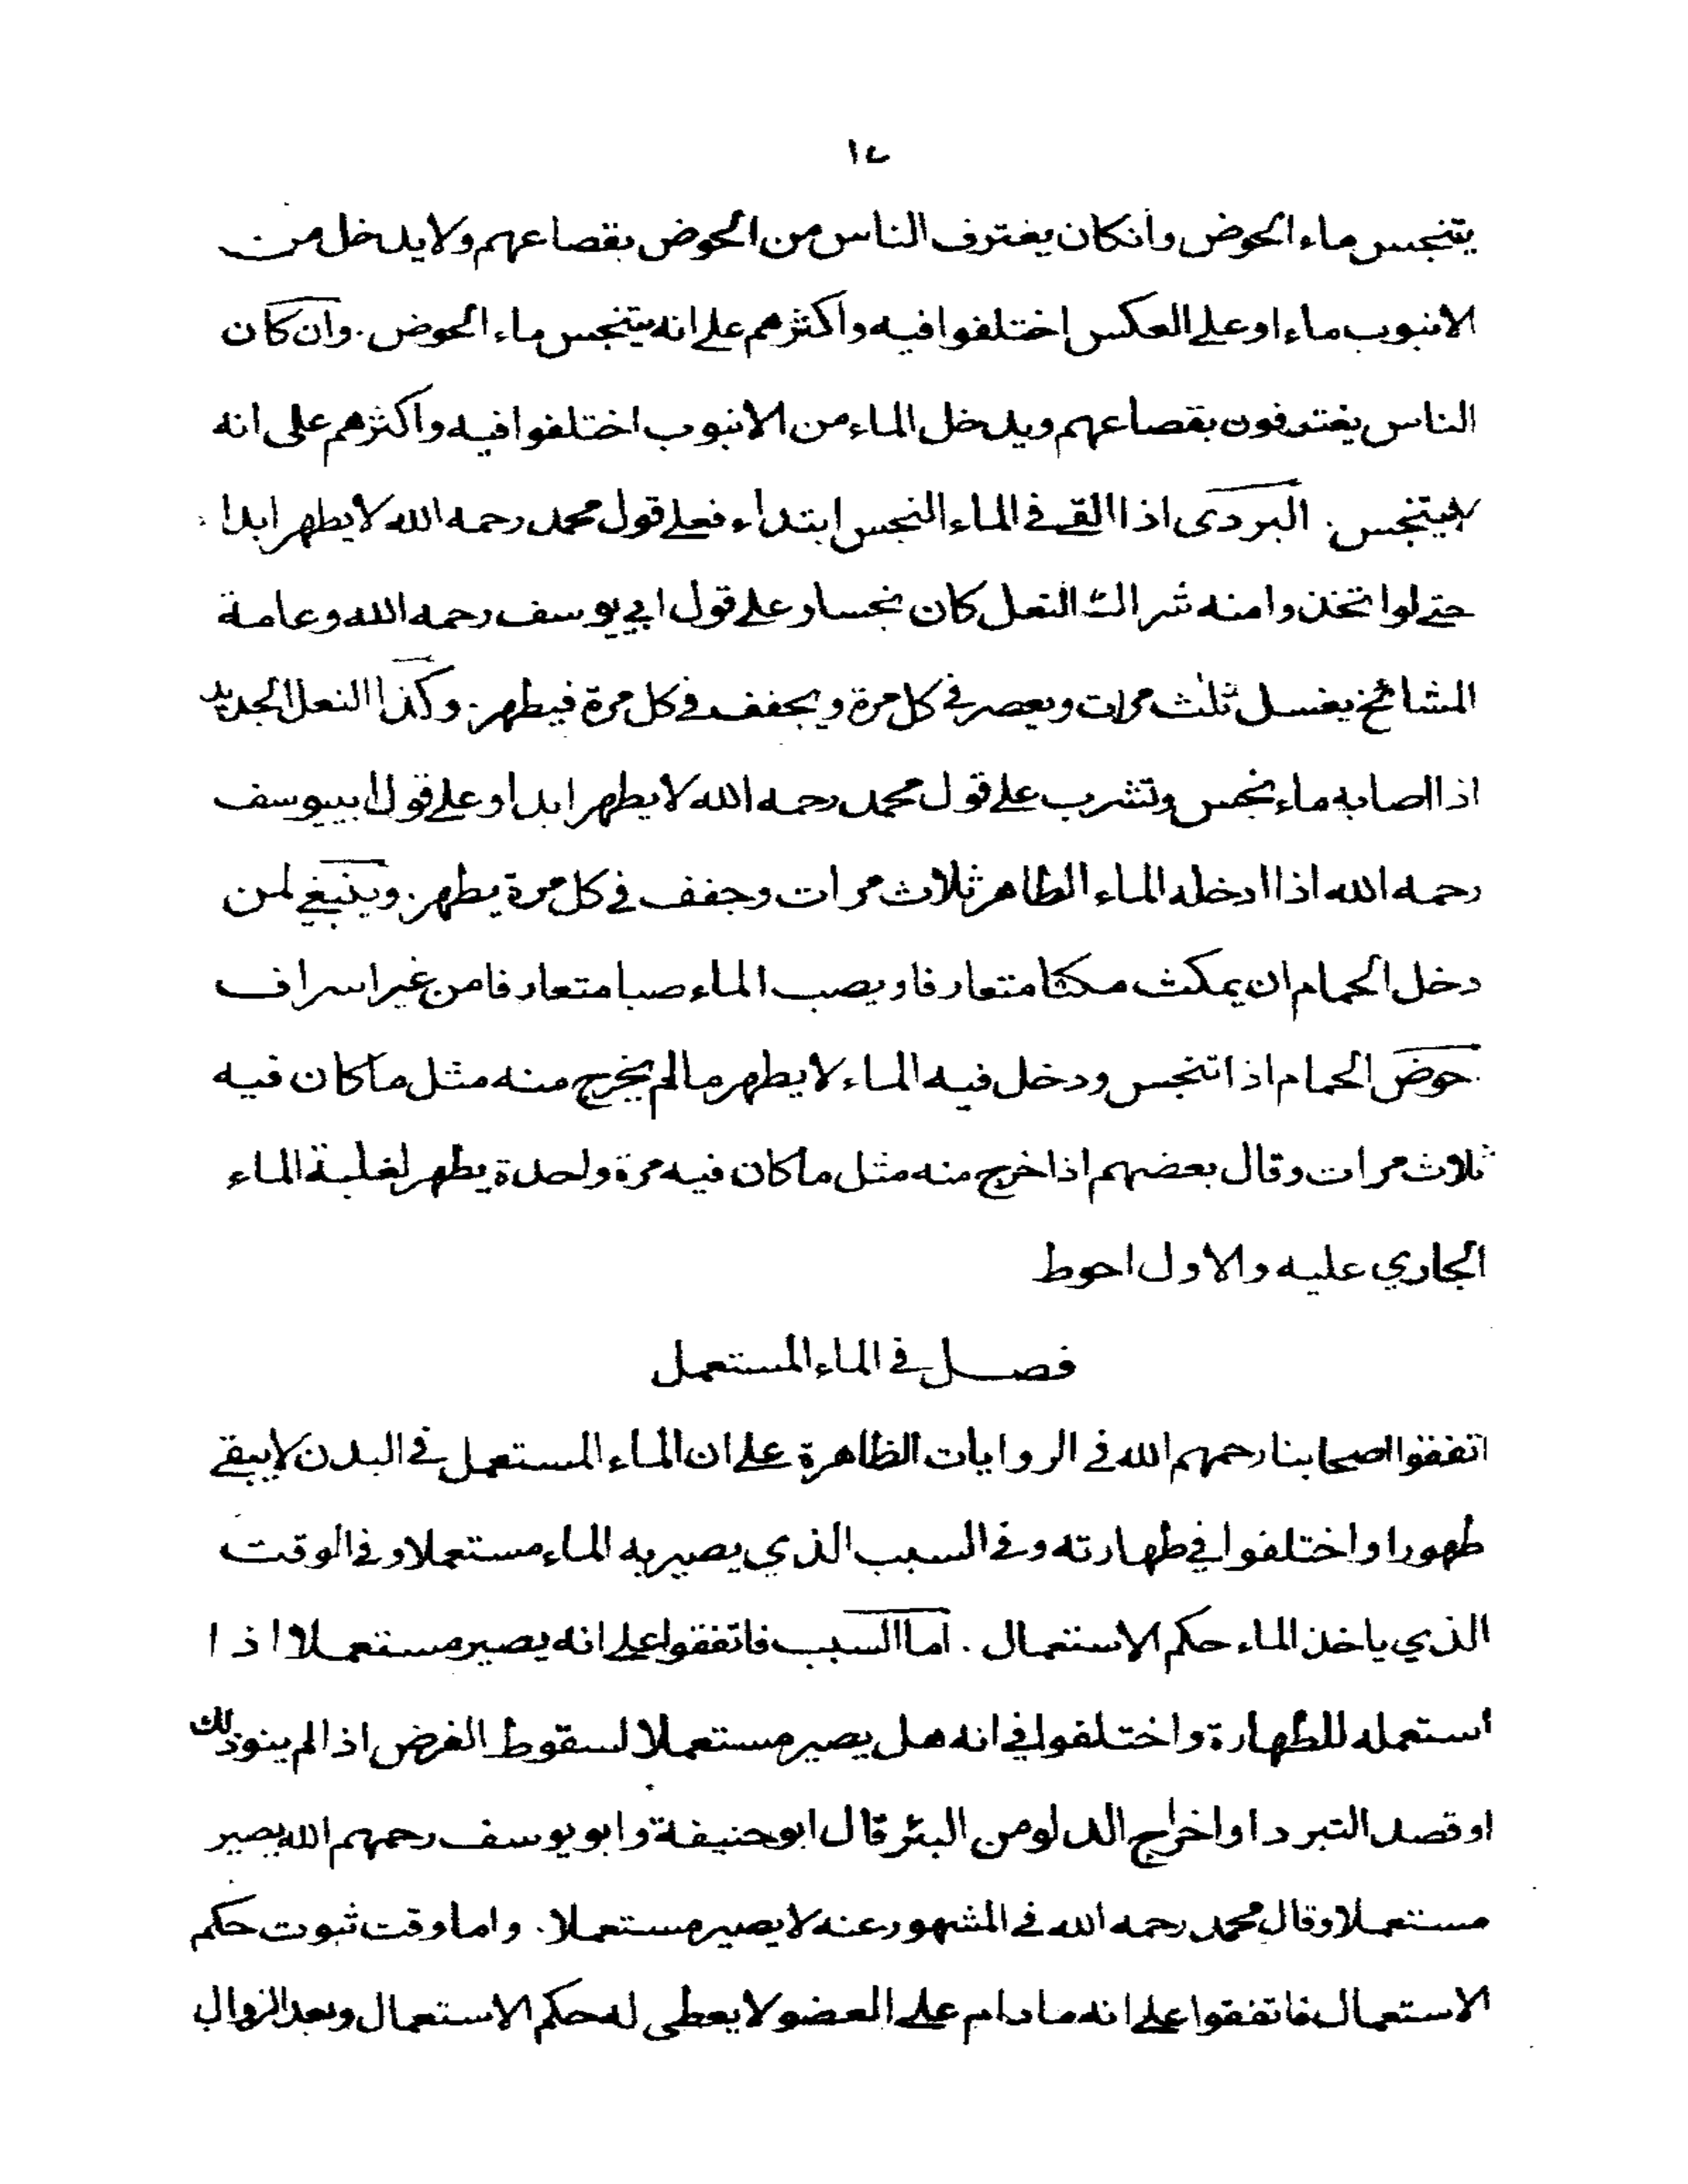 ١٤
يتنجس ماء الحوض وانكان يغترف الناس من الحوض بقصاعهم ولا يدخل من
الانبوب ماء او على العكس اختلفوا فيه واكثرهم على انه يتنجس ماء الحوض . وان كان
الناس يغترفون بقصاعهم ويدخل الماء من الانبوب اختلفوا فيه واكثرهم على انه
لا يتنجس . البردى اذا القي في الماء النجس ابتداء فعلى قول محمد رحمه الله لا يطهر ابدا
حتى لو اتخذوا منه شراك النعل كان نجسا وعلى قول ابي يوسف رحمه الله وعامة
المشائخ يغسل ثلث مرات ويعصر في كل مرة ويجفف في كل مرة فيطهر . وكذا النعل الجديد
اذا اصابه ماء نجس وتشرب على قول محمد رحمه الله لا يطهر ابدا وعلى قول ابييوسف
رحمه الله اذا ادخله الماء الطاهر ثلاث مرات وجفف في كل مرة يطهر . وينبغي لمن
دخل الحمام ان يمكث مكثا متعارفا ويصب الماء صبا متعارفا من غير اسراف
حوض الحمام اذا تنجس ودخل فيه الماء لا يطهر مالم يخرج منه مثل ماكان فيه
ثلاث مرات وقال بعضهم اذا خرج منه مثل ماكان فيه مرة واحدة يطهر لغلبة الماء
الجاري عليه والاول احوط
فصل في الماء المستعمل
اتفقوا اصحابنا رحمهم الله في الروايات الظاهرة على ان الماء المستعمل في البدن لا يبقى
طهورا واختلفوا في طهارته وفي السبب الذي يصير به الماء مستعملا وفي الوقت
الذي ياخذ الماء حكم الاستعمال . اما السبب فاتفقوا على انه يصير مستعملا اذا
استعمله للطهارة واختلفوا في انه هل يصير مستعملا لسقوط الفرض اذا لم ينو ذلك
او قصد التبرد او اخراج الدلو من البئر قال ابو حنيفة وابو يوسف رحمهم الله يصير
مستعملا وقال محمد رحمه الله في المشهور عنه لا يصير مستعملا . واما وقت ثبوت حكم
الاستعمال فاتفقوا على انه مادام على العضو لا يعطى له حكم الاستعمال وبعد الزوال